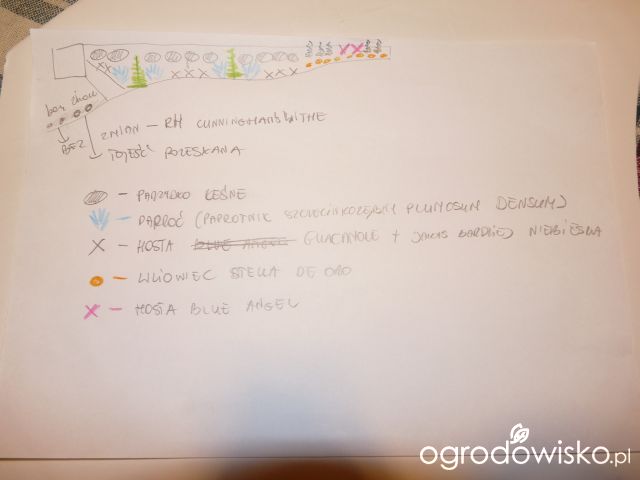 bez
ZMIAN - RH CUNNINGHAMS WITHE
BEZ
TOJEŚĆ ROZESŁANA
- PARZYDŁO LEŚNE
- PAPROĆ (PAPROTNIK SZCZECINKOZĘBNY PLUMOSUM DENSUM)
- HOSTA BLUE ANGEL GUACAMOLE + JAKAŚ BARDZIEJ NIEBIESKA
- LILIOWIEC STELLA DE ORO
- HOSTA BLUE ANGEL
ogrodowisko.pl